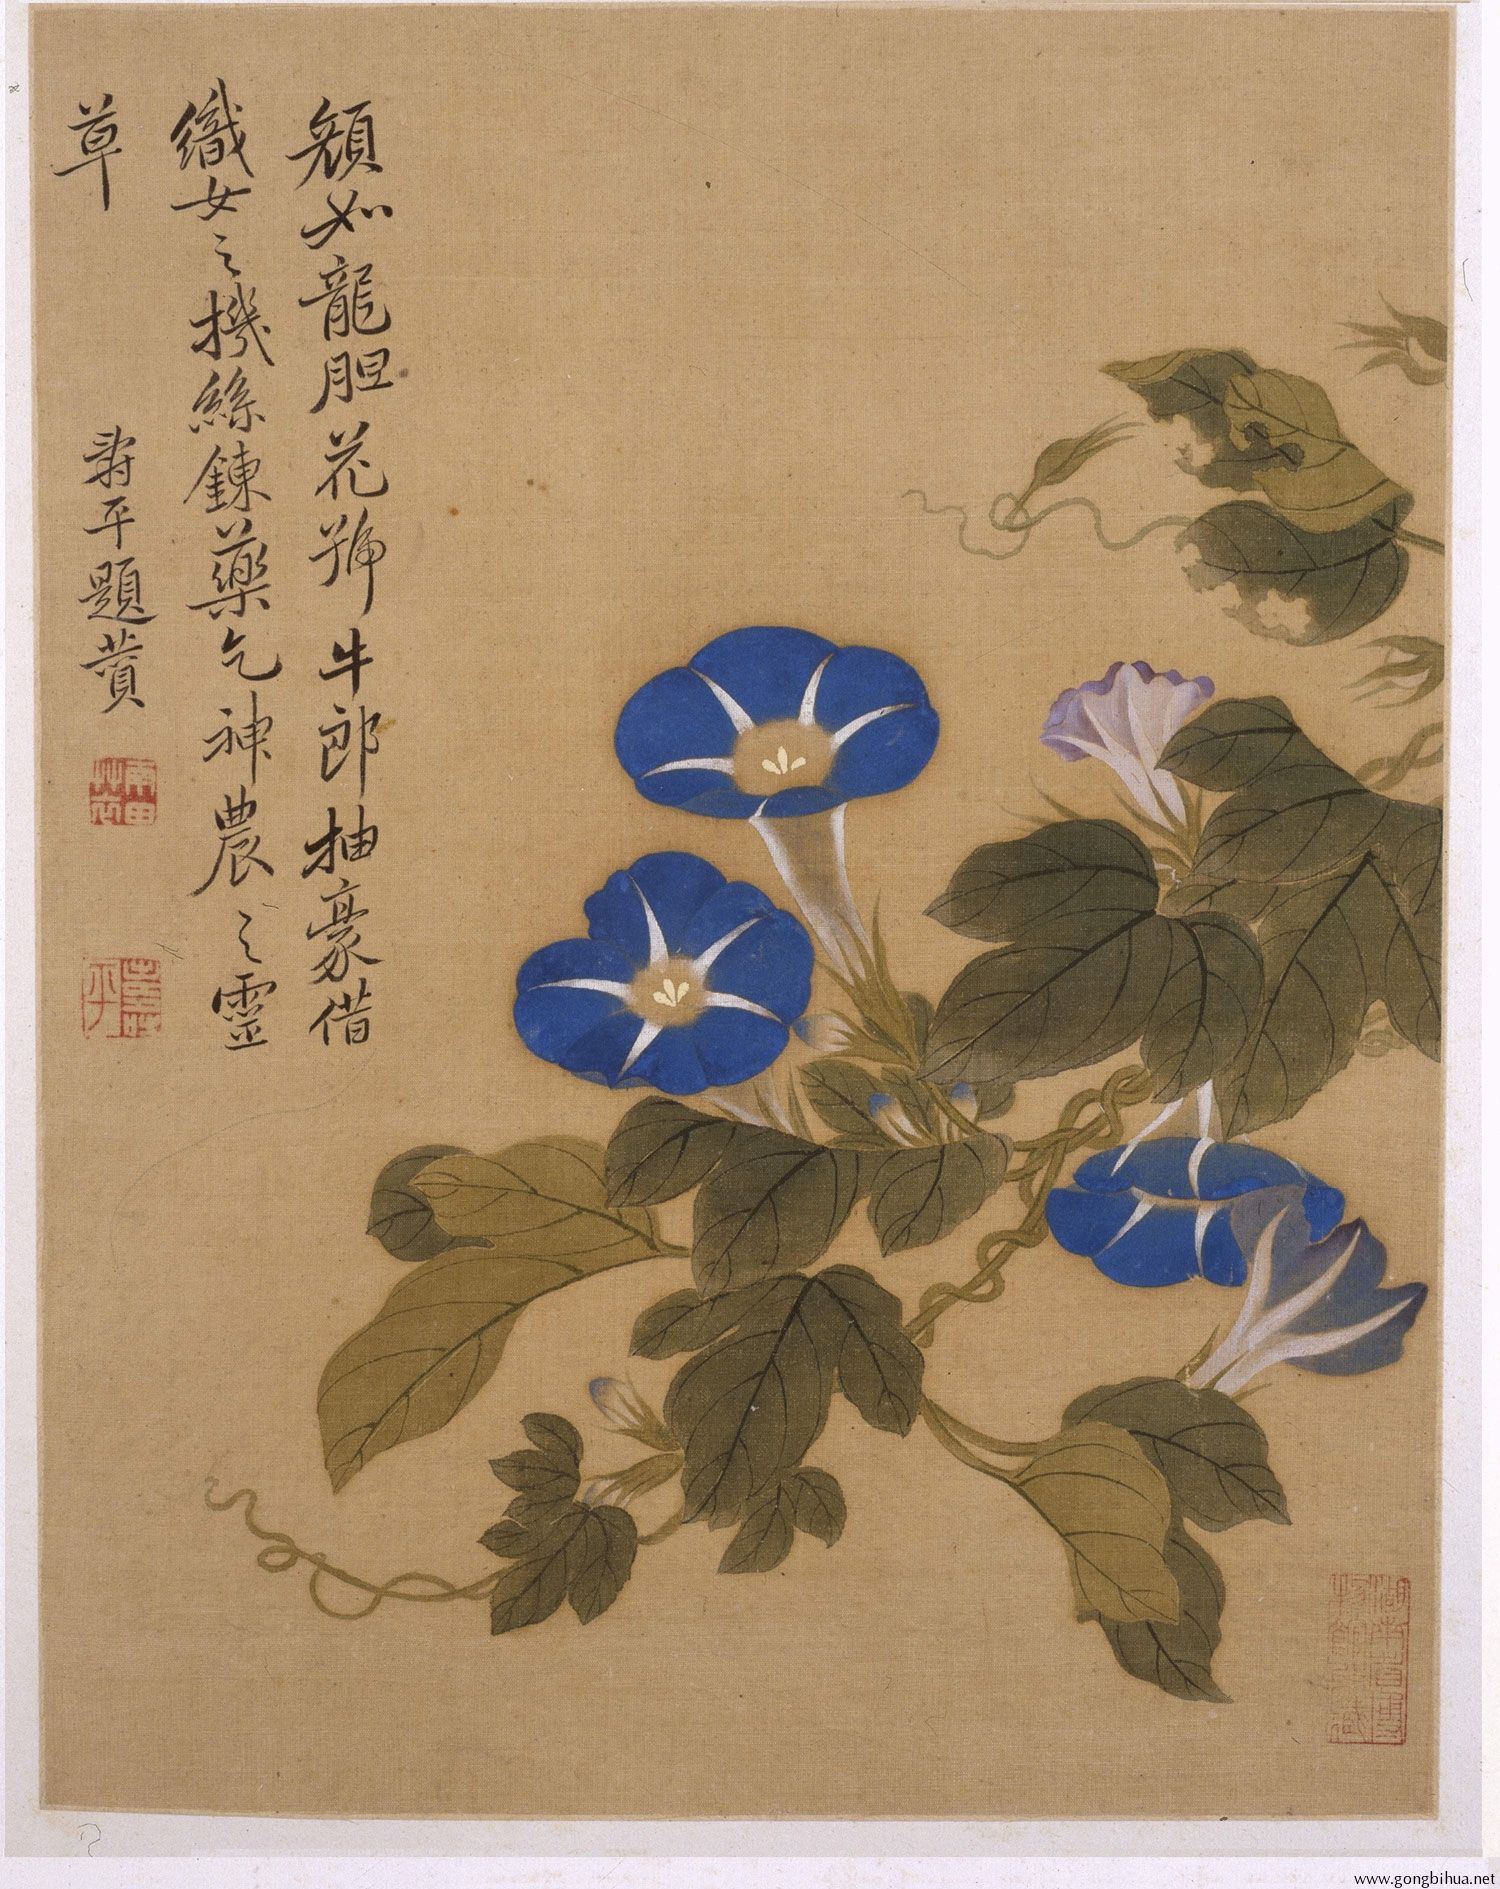 顔如龍胆花號牛郎抽豪借
織女之機絲鍊藥乞神農之靈
草
壽平題贊
www.gongbihua.net